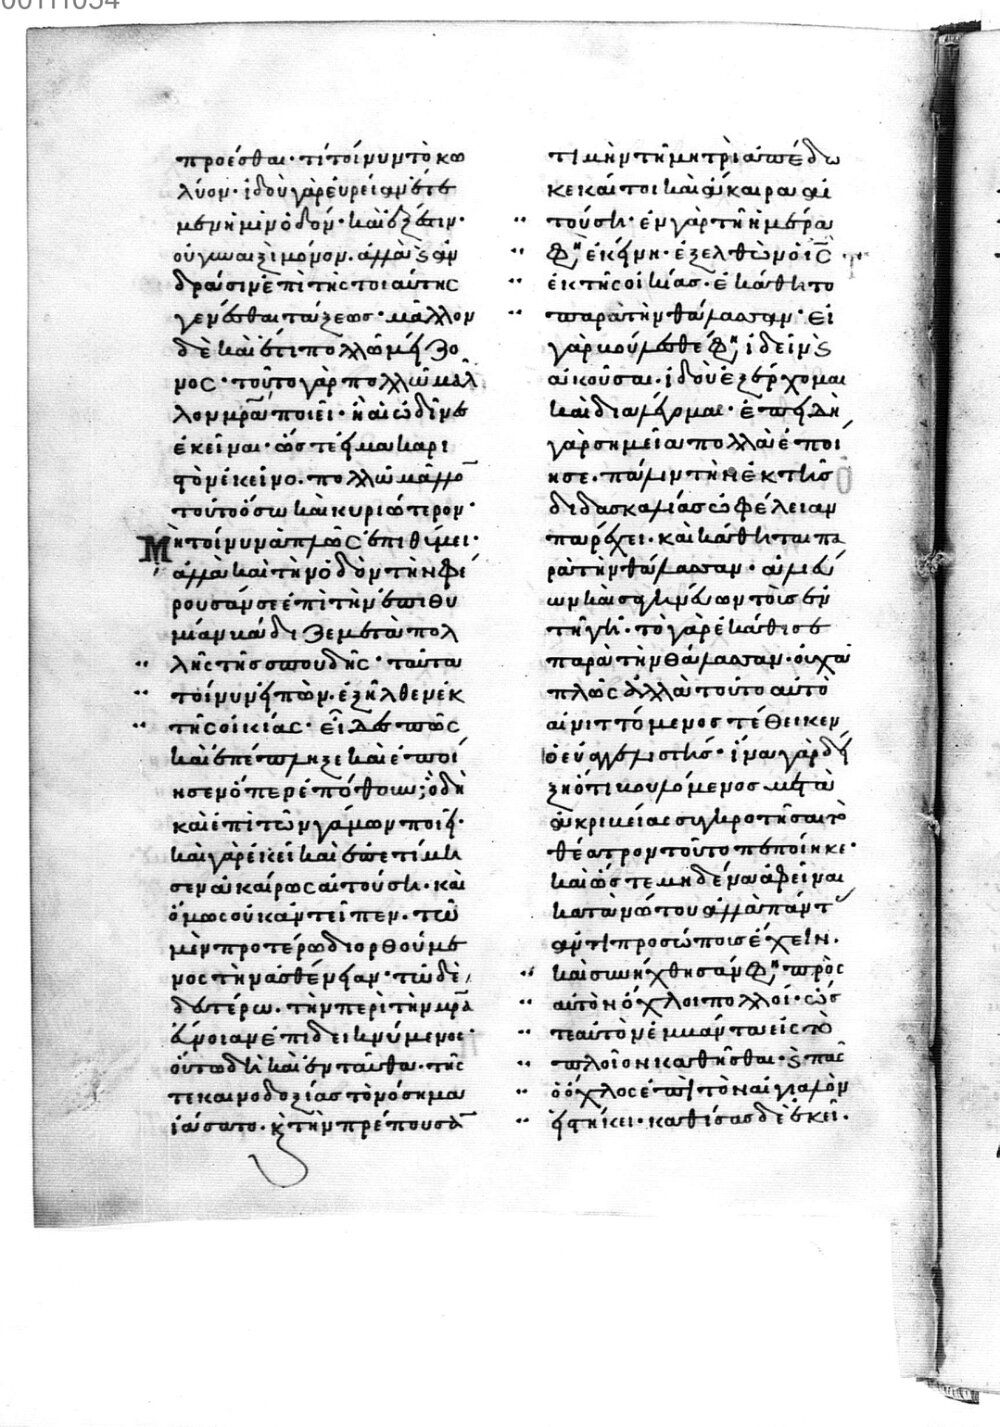 00111054
προέσθαι· τί τοίνυν τὸ κω
λύον· ἰδοὺ γὰρ ἑυρεῖαν ἔτε
μεν ἡμῖν ὁδόν· καὶ ἔξεστιν·
οὐ γυναιξὶ μόνον. ἀλλὰ ϗ ἀν
δράσιν ἐπὶ τῆς τοιαύτης
γενέσθαι τάξεως· μᾶλλον
δὲ καὶ ἔτι πολλῶ μείζο
νος· τοῦτο γὰρ πολλῶ μᾶλ
λον μρ̅α ποιεῖ· ἢ αἱ ὠδῖνες
ἐκεῖναι· ὥστε εἰ μακαρι
στὸν ἐκεῖνο. πολλῶ μᾶλλο̅
τοῦτο ὅσω καὶ κυριώτερον·
Μὴ τοίνυν ἁπλῶς ἐπιθύμει·
ἀλλὰ καὶ τὴν ὁδὸν τὴν φέ
ρουσάν σε ἐπὶ τὴν ἐπιθυ
μίαν βάδιζε μετὰ πολ
λῆς τῆς σπουδῆς· ταῦτα
τοίνυν εἰπὼν. ἐξῆλθεν ἐκ
τῆς οἰκίας· εἶδες πῶς
καὶ ἐπέπληξε καὶ ἐποί
ησεν ὅπερ ἐπόθουν; ὃ δὴ
καὶ ἐπὶ τῶν γάμων ποιεῖ·
καὶ γὰρ ἐκεῖ καὶ ἐπετίμη
σεν ἀκαίρως αἰτούση· καὶ
ὅμως οὐκ ἀντεῖπεν. τῶ
μὲν προτέρω διορθούμε
νος τὴν ἀσθένειαν· τῶ δὲ
δευτέρω. τὴν περὶ τὴν μρ̅α
εὔνοιαν ἐπιδεικνύμενος·
οὕτω δὴ καὶ ἐνταῦθα. τῆς
τε κενοδοξίας τὸ νόσημα
ἰάσατο. ϗ τὴν πρέπουσα̅
τιμὴν τῆ μητρὶ ἀπέδω
κε καίτοι καὶ ἄκαιρα αἰ
τούση· ἐν γὰρ τῆ ἡμέρα
φη ἐκείνη· ἐξελθὼν ὁ ις̅
ἐκ τῆς οἰκίας· ἐκάθητο
παρὰ τὴν θάλασσαν· εἰ
γὰρ βούλεσθέ φη ἰδεῖν ϗ
ἀκοῦσαι. ἰδοὺ ἐξέρχομαι
καὶ διαλέγομαι· ἐπειδὴ
γὰρ σημεῖα πολλὰ ἐποί
ησε. πάλιν τὴν ἐκ τῆς
διδασκαλίας ὠφέλειαν
παρέχει. καὶ κάθηται πα
ρὰ τὴν θάλασσαν· ἁλιεύ
ων καὶ σαγηνεύων τοὺς ἐν
τῆ γῆ· τὸ γὰρ ἐκάθισε
παρὰ τὴν θάλασσαν· οὐχ ἁ
πλῶς ἀλλὰ τοῦτο αὐτὸ
αἰνιττόμενος τέθεικεν
ὁ εὐαγγελιστής· ἵνα γὰρ δεί
ξη ὅτι βουλόμενος μετὰ
ἀκριβείας συγκροτῆσαι τὸ
θέατρον τοῦτο πεποίηκε·
καὶ ὥστε μηδένα ἀφεῖναι
κατὰ νώτου ἀλλὰ πάντας
ἀντιπροσώπους ἔχειν.
καὶ συνήχθησαν φη πρὸς
αὐτὸν ὄχλοι πολλοί· ὥς
τε αὐτὸν ἐμβάντα εἰς τὸ
πλοῖον καθῆσθαι· ϗ πᾶς
ὁ ὄχλος ἐπὶ τὸν αἰγιαλὸν
εἱστήκει· καθίσας δὲ ἐκεῖ.